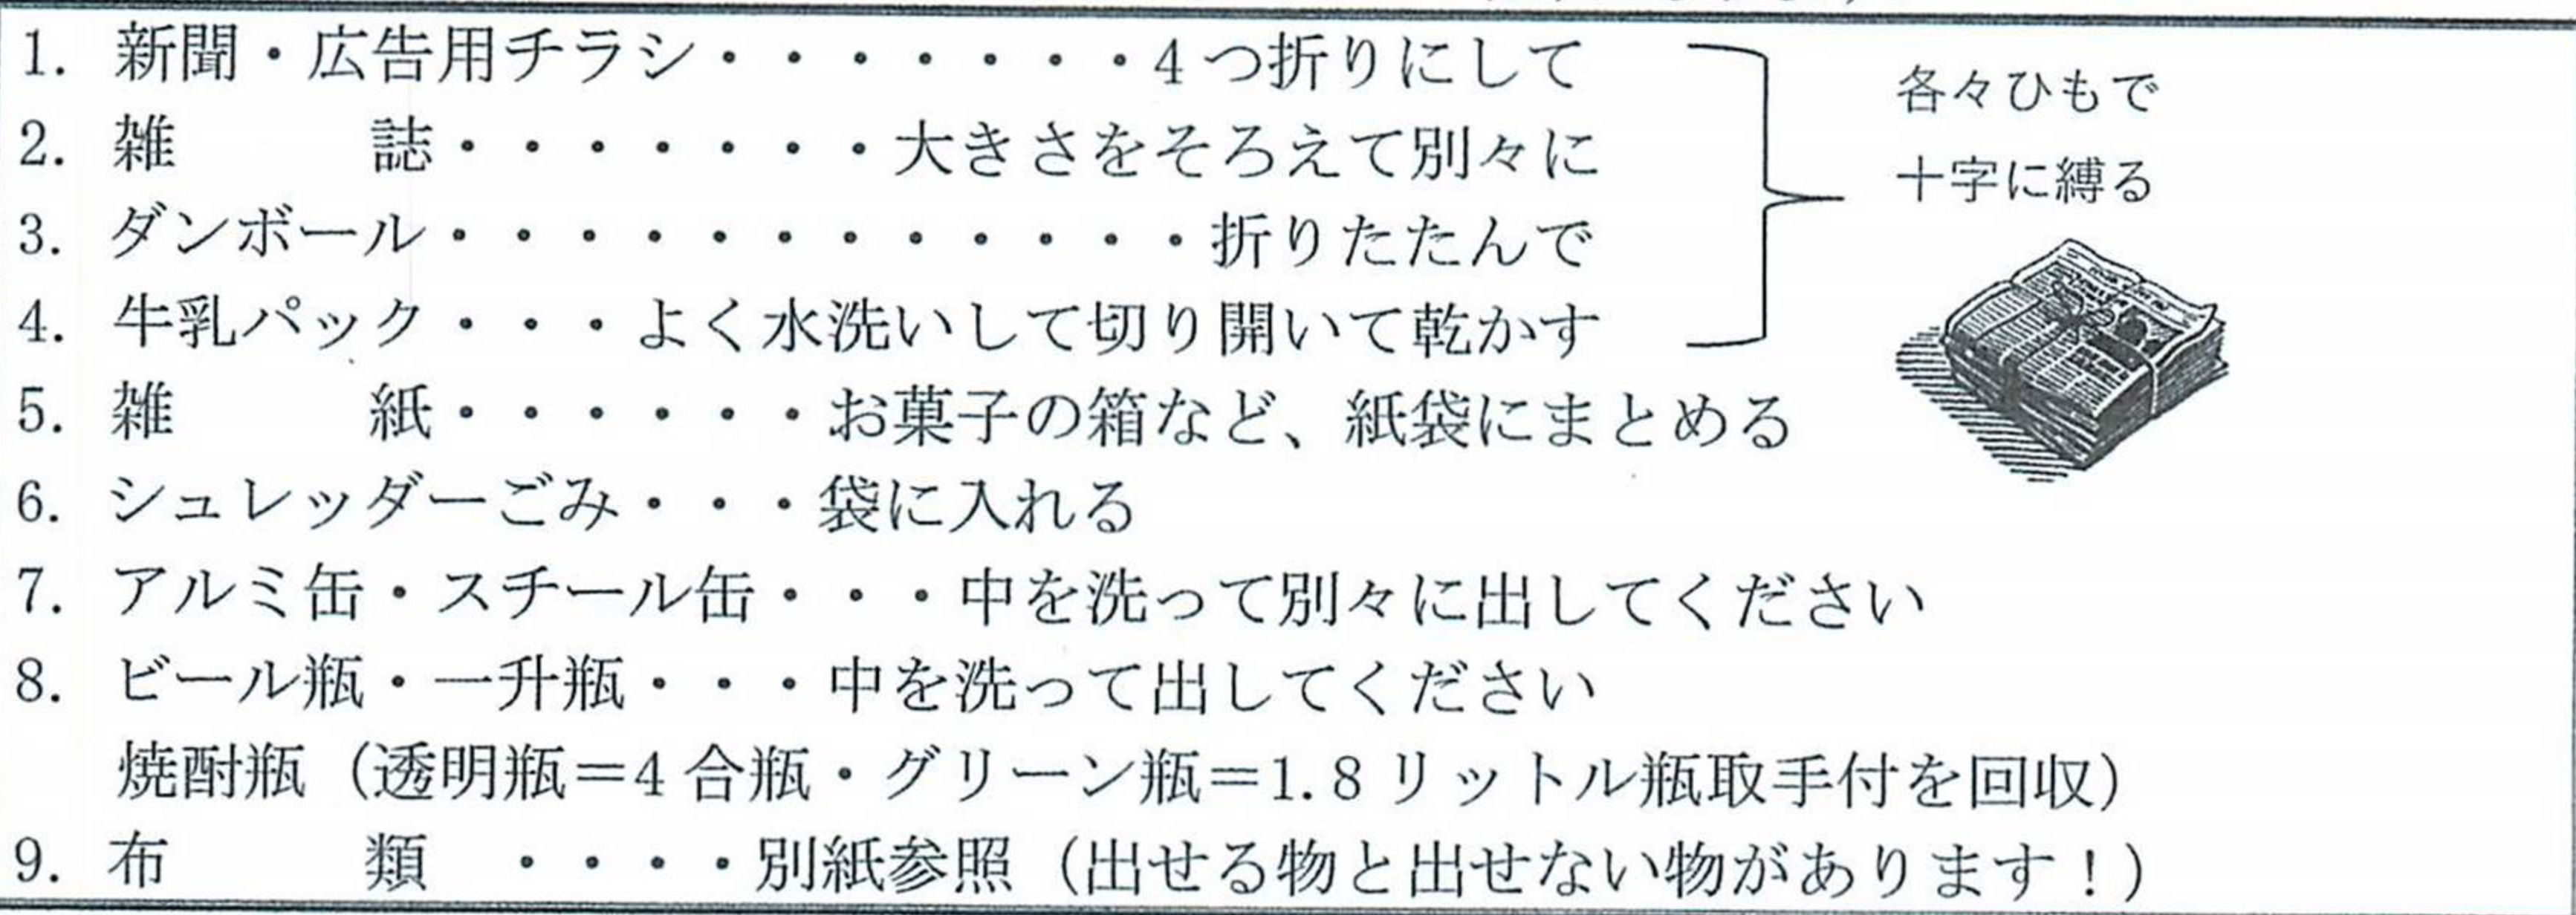 1. 新聞・広告用チラシ・・・・・・・4つ折りにして
2. 雑　　　誌・・・・・・・大きさをそろえて別々に
3. ダンボール・・・・・・・・・・・・折りたたんで
4. 牛乳パック・・・よく水洗いして切り開いて乾かす
各々ひもで
十字に縛る
5. 雑　　　紙・・・・・・お菓子の箱など、紙袋にまとめる
6. シュレッダーごみ・・・袋に入れる
7. アルミ缶・スチール缶・・・中を洗って別々に出してください
8. ビール瓶・一升瓶・・・中を洗って出してください
焼酎瓶（透明瓶＝4合瓶・グリーン瓶＝1.8リットル瓶取手付を回収）
9. 布　　　類　・・・・別紙参照（出せる物と出せない物があります！）